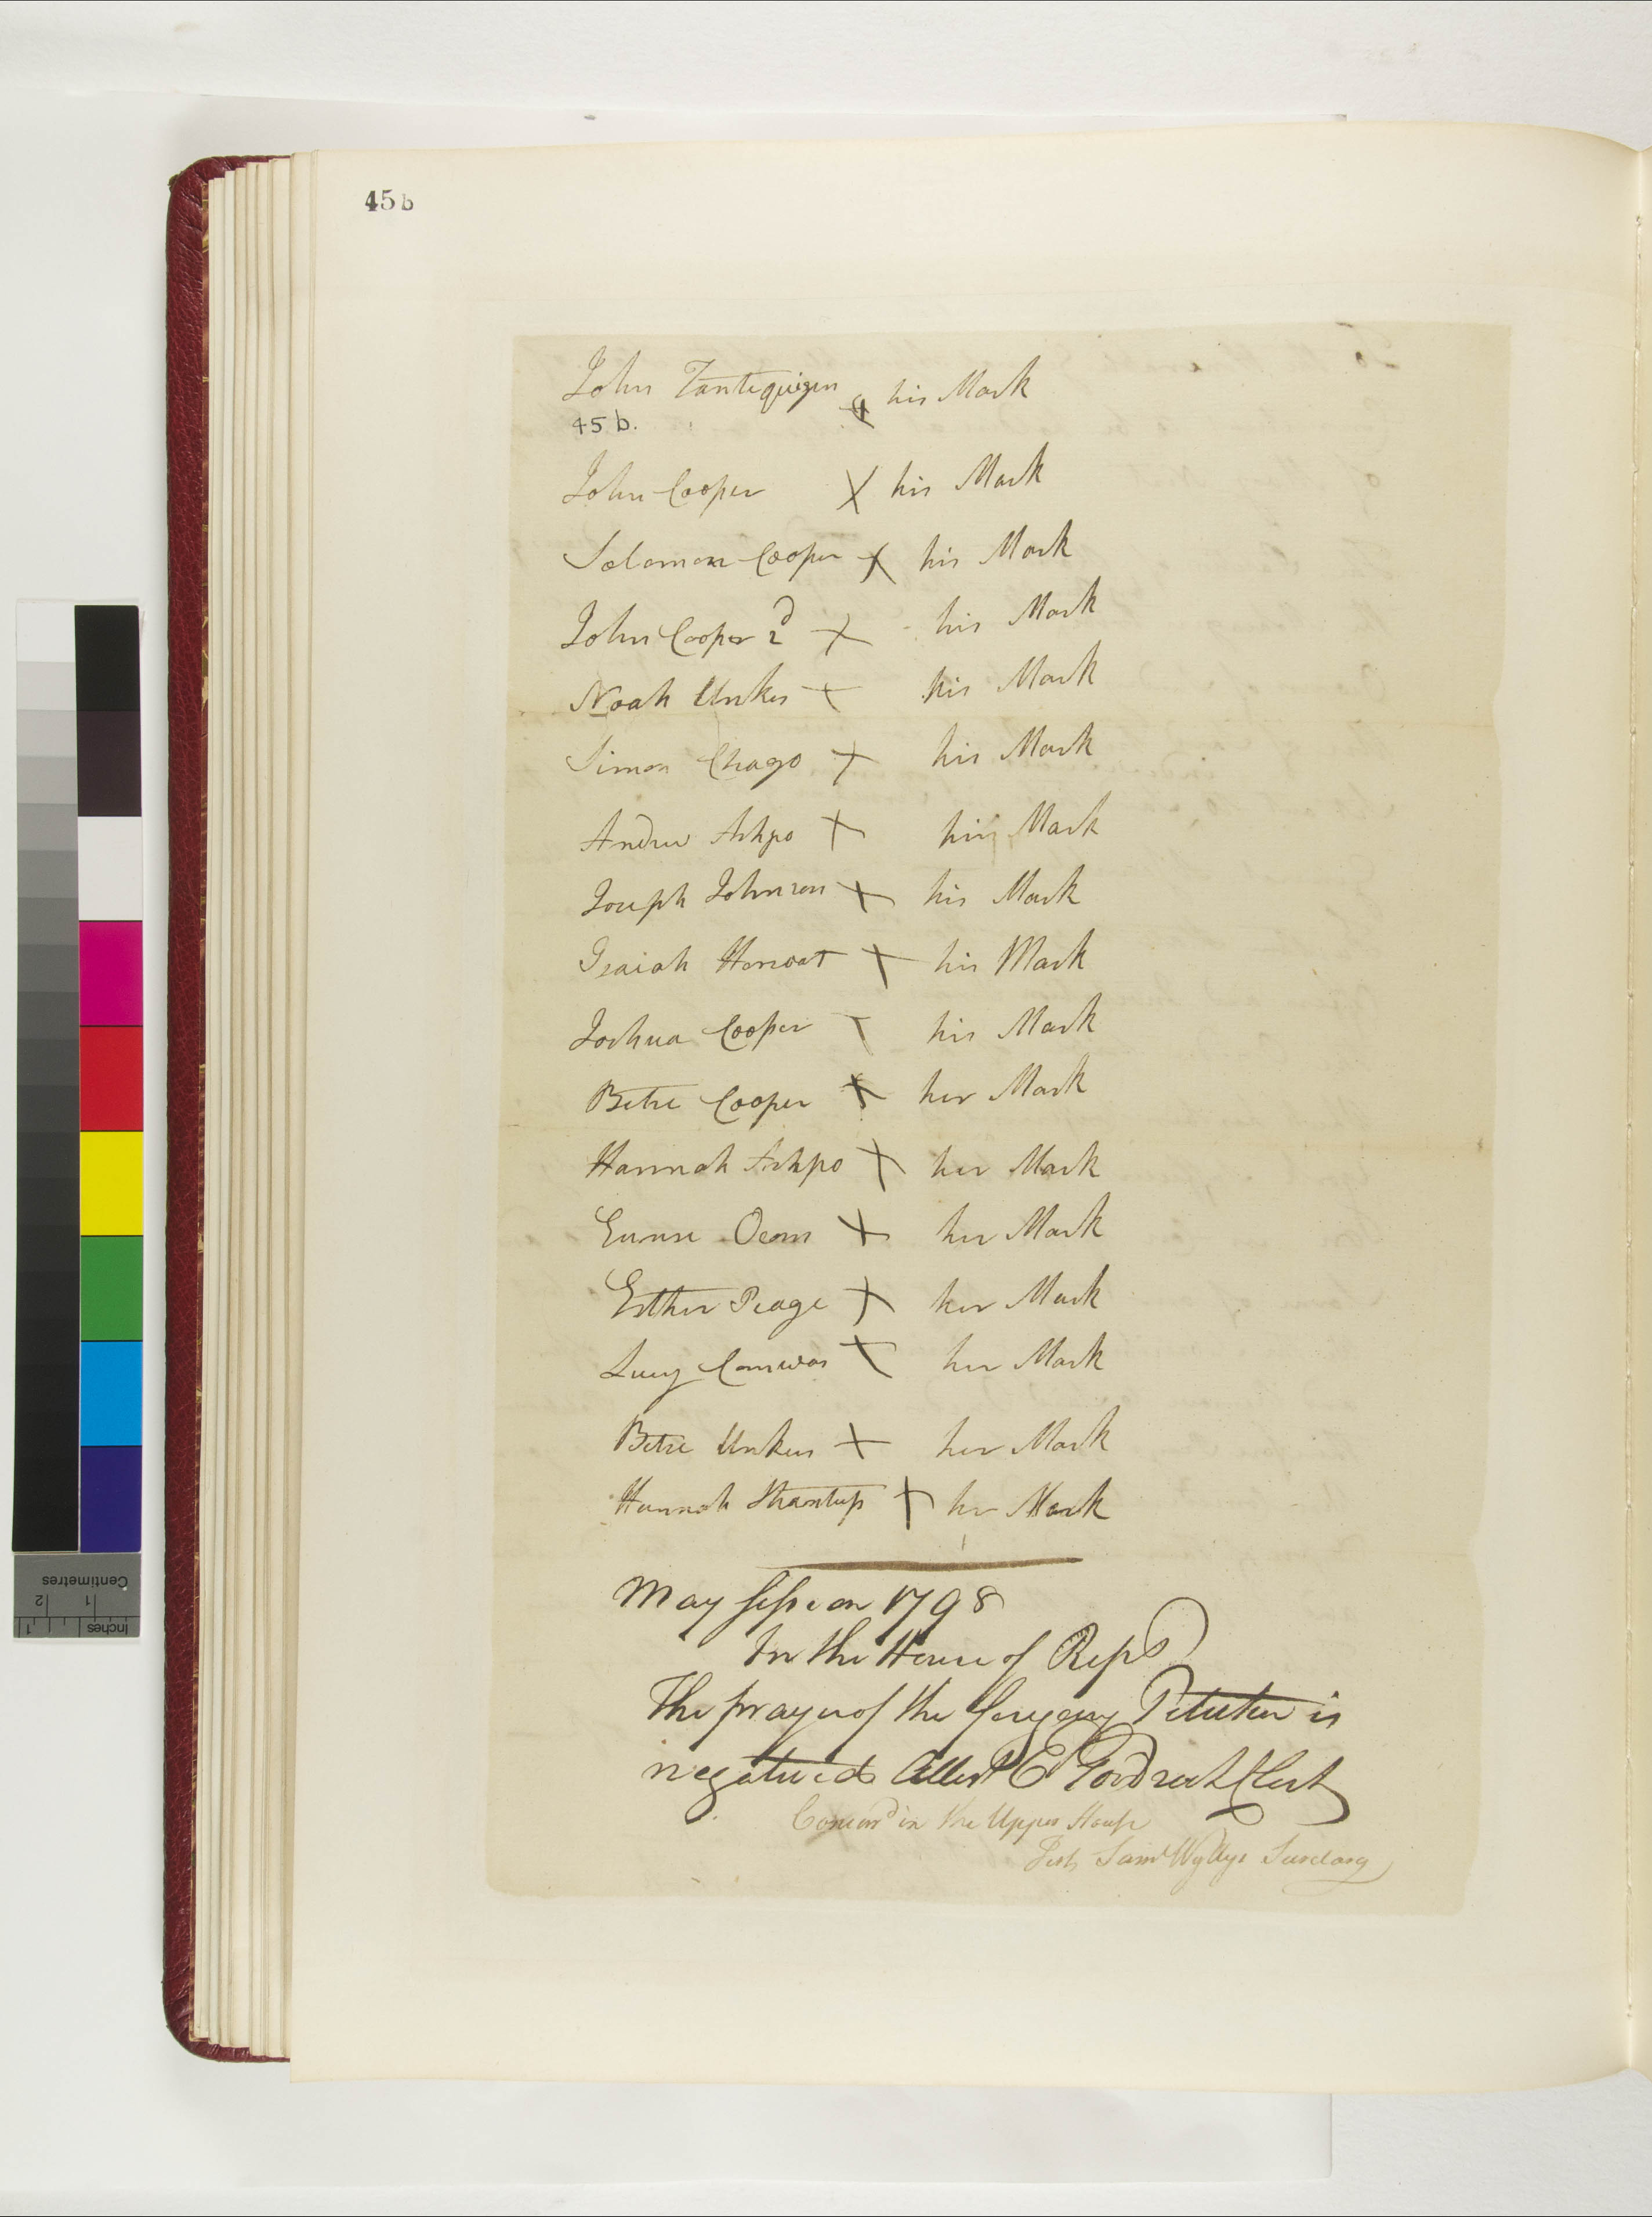 45b
John Tantequigen his Mark
45 b.
John Cooper X his Mark
Solomon Cooper X his Mark
John Cooper 2d X his Mark
Noah Unkes X his Mark
Simon Chago X his Mark
Andrew Ashpo X his Mark
Joseph Johnson X his Mark
Isaiah Horscot X his Mark
Joshua Cooper X his Mark
Betse Cooper X her Mark
Hannah Ashpo X her Mark
Eunise Ocom X her Mark
Esther Peage X her Mark
Lucy Comwas X her Mark
Betse Unkus X her Mark
Hannah Shantup X her Mark
May Session 1798
In the House of Reps
The prayer of the foregoing Petition is
negatived Attest E Goodrich Clerk
Concurd in the Upper House
Test Saml Wyllys Secretary
Centimetres
1
2
Inches
1